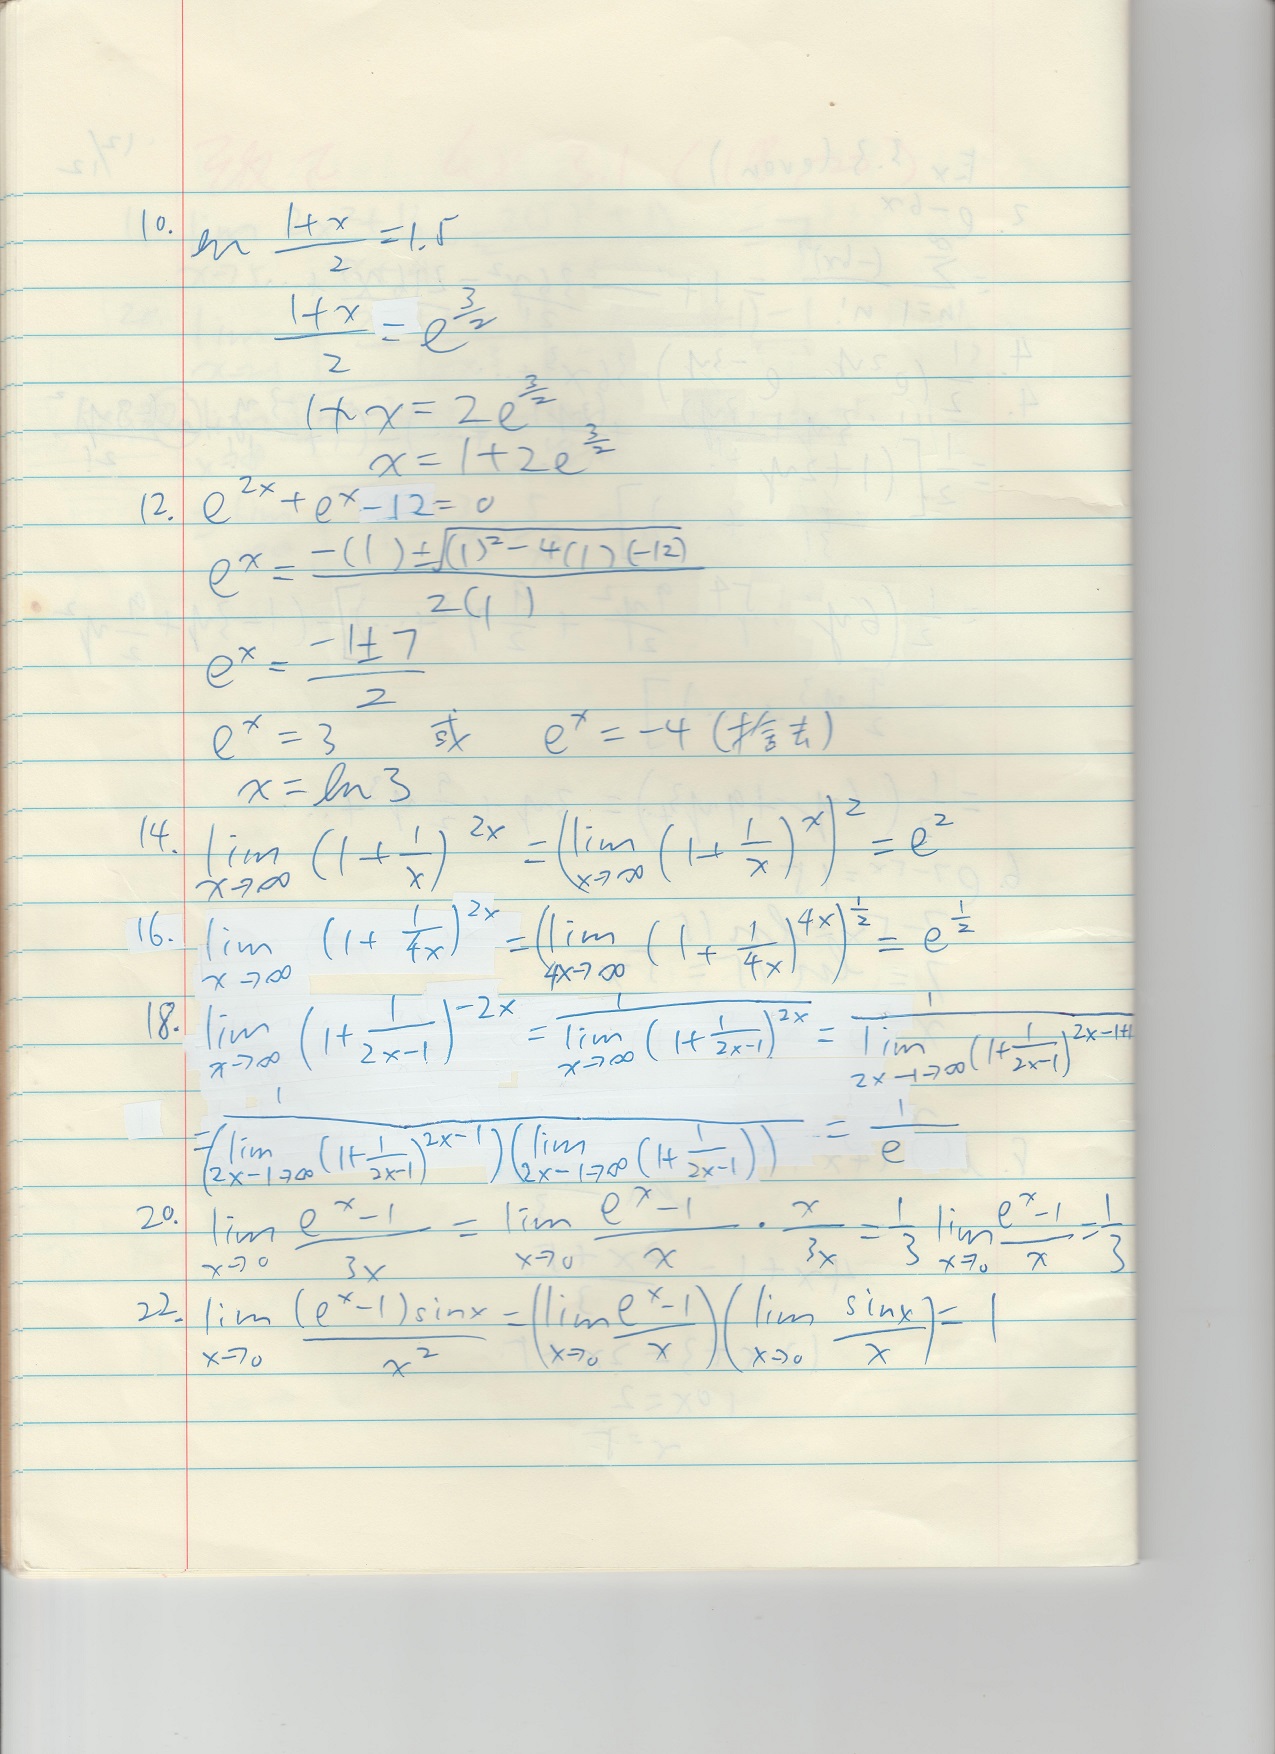 10. ln (1+x)/2 = 1.5
(1+x)/2 = e^(3/2)
1+x = 2e^(3/2)
x = 1+2e^(3/2)
12. e^(2x) + e^x - 12 = 0
e^x = (-(1) ± √((1)^2 - 4(1)(-12))) / 2(1)
e^x = (-1±7)/2
e^x = 3 或 e^x = -4 (捨去)
x = ln 3
14. lim x→∞ (1+1/x)^(2x) = (lim x→∞ (1+1/x)^x)^2 = e^2
16. lim x→∞ (1+1/(4x))^(2x) = (lim 4x→∞ (1+1/(4x))^(4x))^(1/2) = e^(1/2)
18. lim x→∞ (1+1/(2x-1))^(-2x) = 1/(lim x→∞ (1+1/(2x-1))^(2x)) = 1/(lim 2x-1→∞ (1+1/(2x-1))^(2x-1+1))
= 1/((lim 2x-1→∞ (1+1/(2x-1))^(2x-1))(lim 2x-1→∞ (1+1/(2x-1)))) = 1/e
20. lim x→0 (e^x-1)/(3x) = lim x→0 (e^x-1)/x · x/(3x) = 1/3 lim x→0 (e^x-1)/x = 1/3
22. lim x→0 ((e^x-1) sinx)/x^2 = (lim x→0 (e^x-1)/x)(lim x→0 sinx/x) = 1